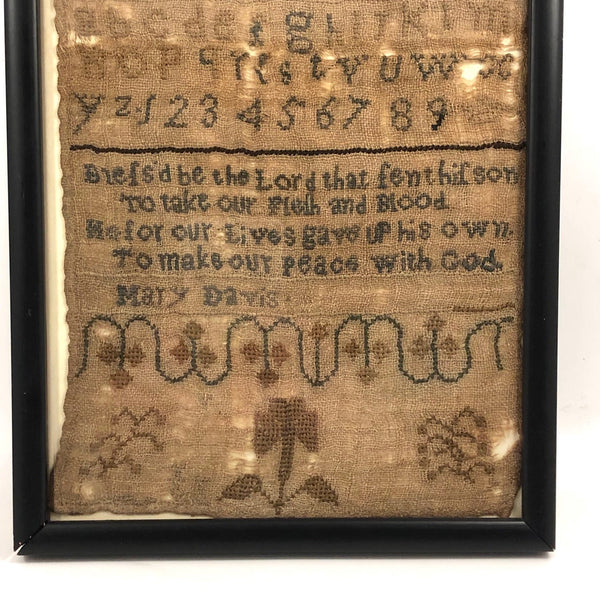 a b c d e f g h i k l m
n o p q r ſ s t v u w x
y z & 1 2 3 4 5 6 7 8 9
Bleſs'd be the Lord that ſent hiſ son
To take our Fleſh and Blood
He for our Lives gave up his own
To make our peace with God.
Mary Davis